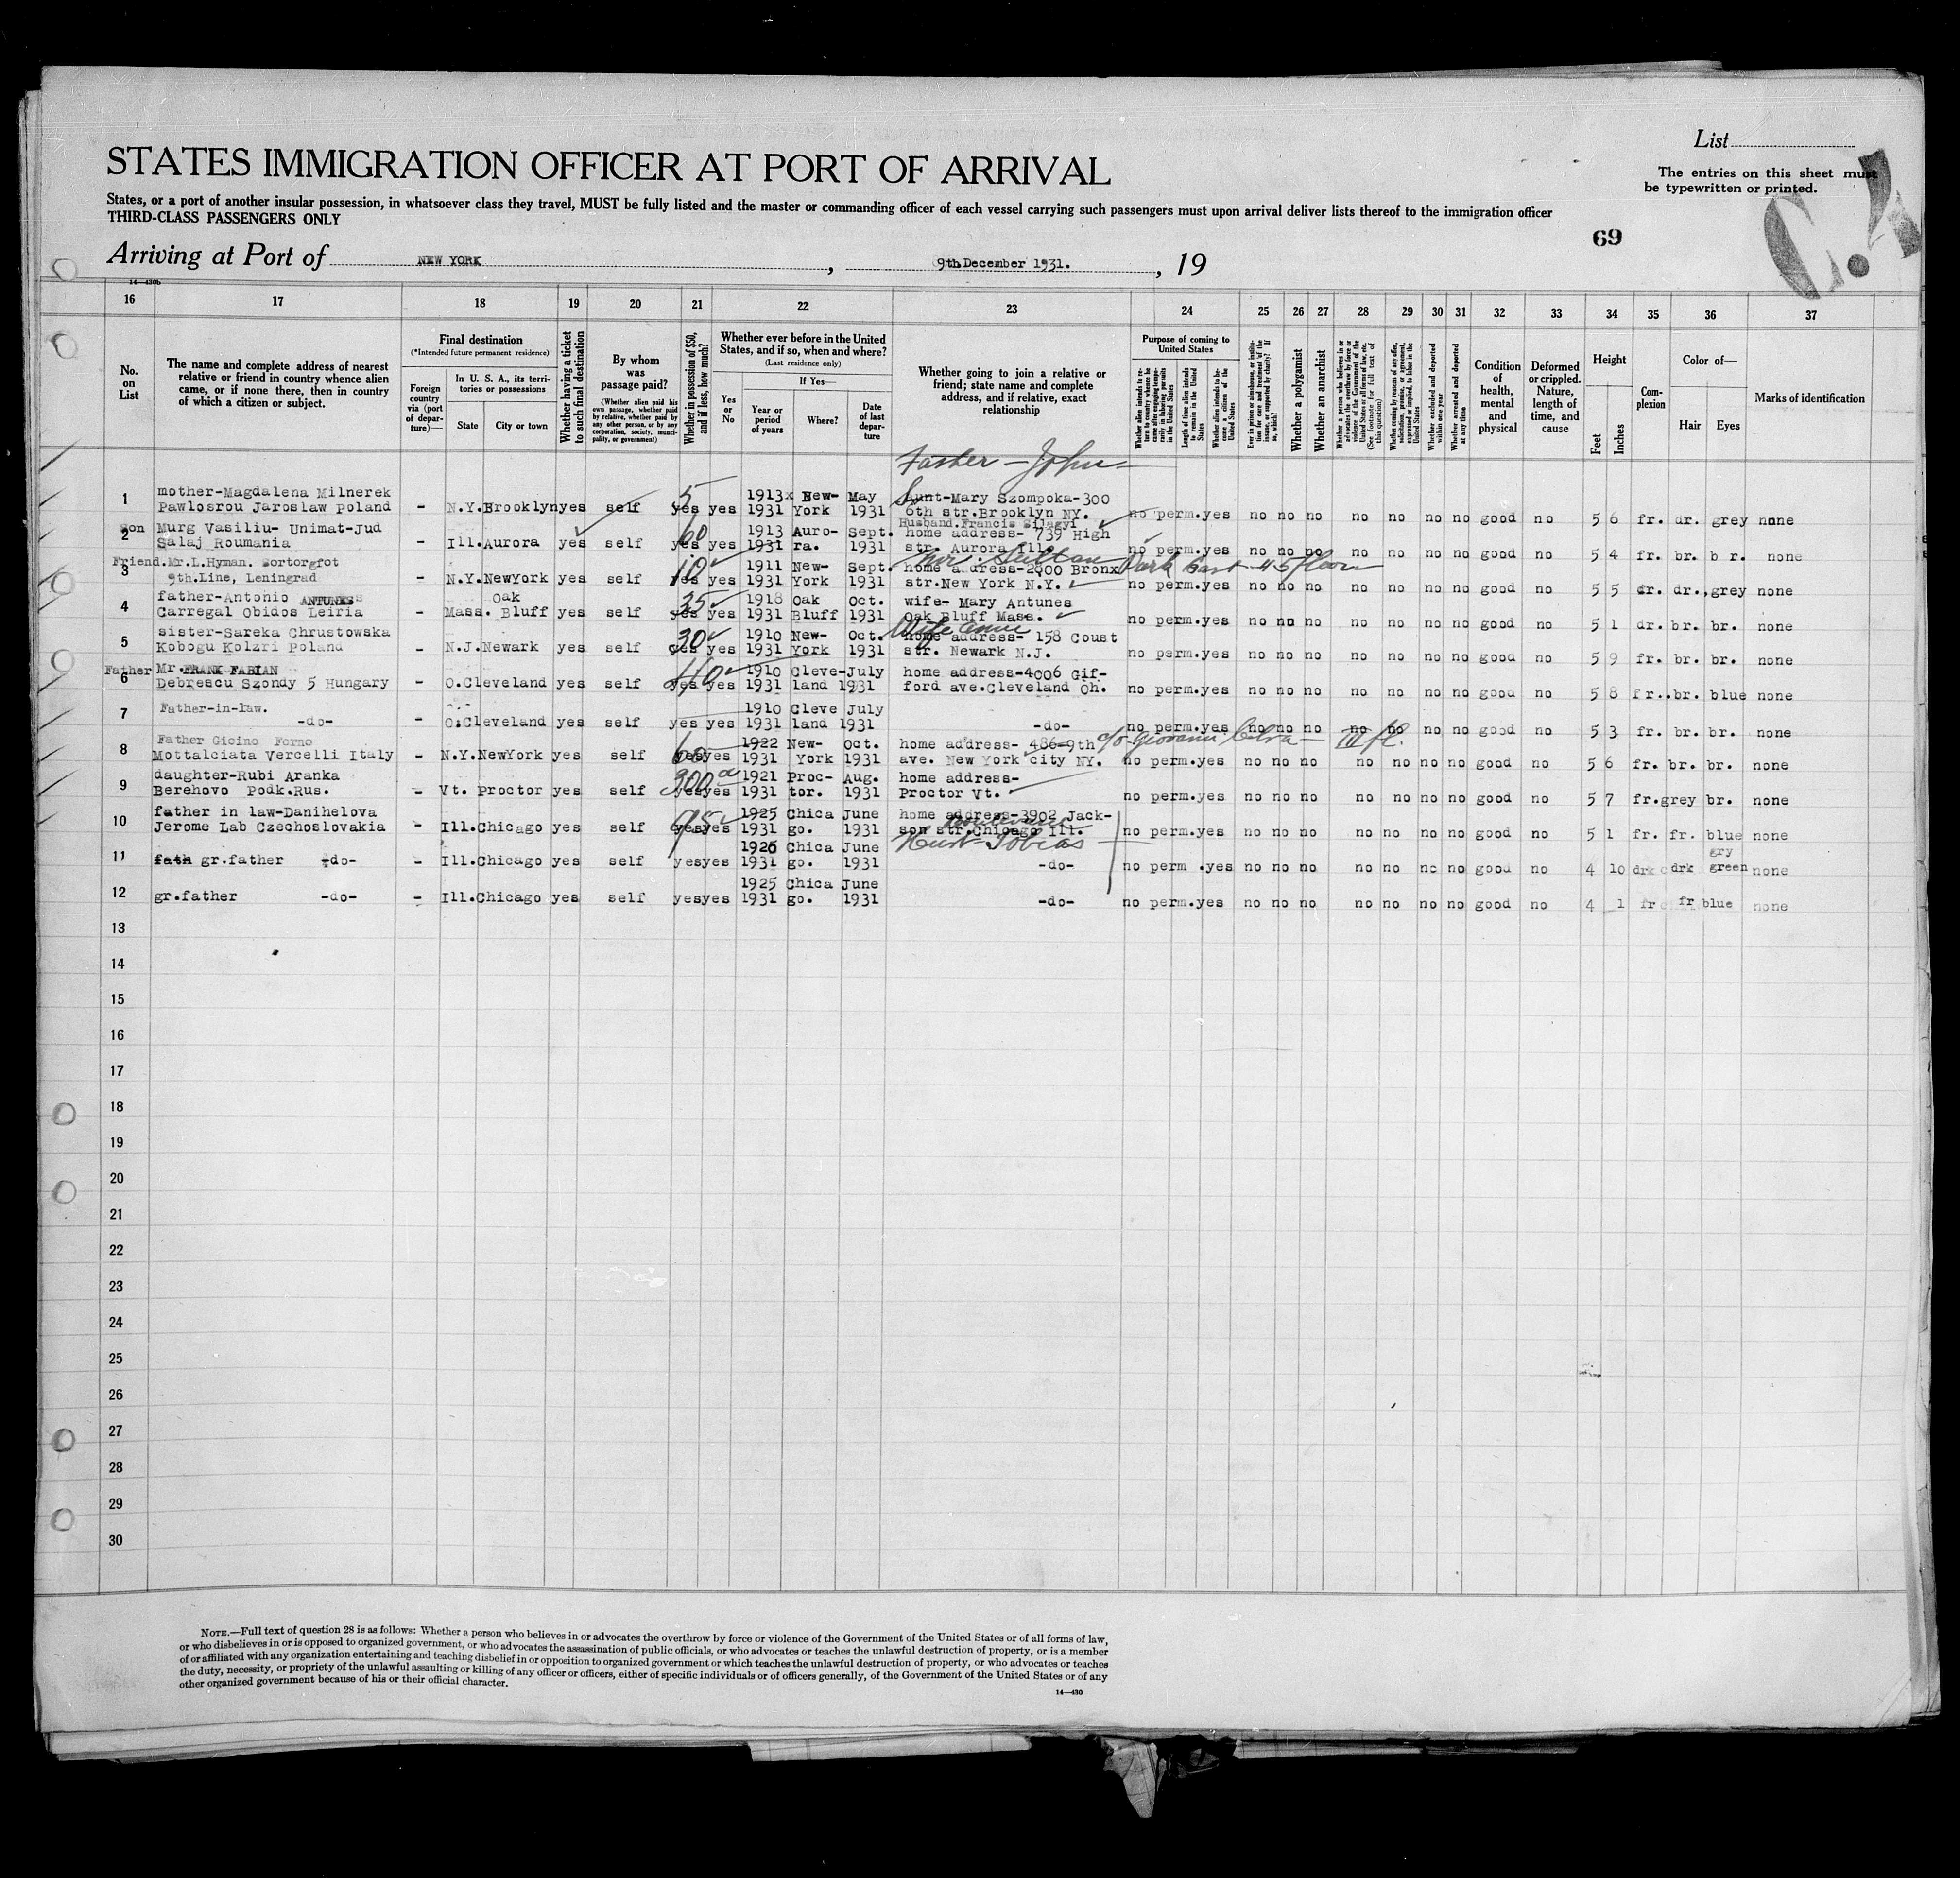 List
STATES IMMIGRATION OFFICER AT PORT OF ARRIVAL
The entries on this sheet must
be typewritten or printed.
States, or a port of another insular possession, in whatsoever class they travel, MUST be fully listed and the master or commanding officer of each vessel carrying such passengers must upon arrival deliver lists thereof to the immigration officer
THIRD-CLASS PASSENGERS ONLY
69
Arriving at Port of NEW YORK, 9th December 1931., 19
14-430b
16 17 18 19 20 21 22 23 24 25 26 27 28 29 30 31 32 33 34 35 36 37
No. on List
The name and complete address of nearest relative or friend in country whence alien came, or if none there, then in country of which a citizen or subject.
Final destination
(*Intended future permanent residence)
Foreign country via (port of departure)—
In U. S. A., its territories or possessions
State
City or town
Whether having a ticket to such final destination
By whom was passage paid?
(Whether alien paid his own passage, whether paid by relative, whether paid by any other person, or by any corporation, society, municipality, or government)
Whether in possession of $50, and if less, how much?
Whether ever before in the United States, and if so, when and where?
(Last residence only)
Yes or No
If Yes—
Year or period of years
Where?
Date of last departure
Whether going to join a relative or friend; state name and complete address, and if relative, exact relationship
Purpose of coming to United States
Whether alien intends to return to country whence he came after engaging temporarily in laboring pursuits in the United States
Length of time alien intends to remain in the United States
Whether alien intends to become a citizen of the United States
Ever in prison or almshouse, or institution for care and treatment of the insane, or supported by charity? If so, which?
Whether a polygamist
Whether an anarchist
Whether a person who believes in or advocates the overthrow by force or violence of the Government of the United States or of all forms of law, etc. (See footnote for full text of this question)
Whether coming by reason of any offer, solicitation, promise, or agreement, expressed or implied, to labor in the United States
Whether excluded and deported within one year
Whether arrested and deported at any time
Condition of health, mental and physical
Deformed or crippled. Nature, length of time, and cause
Height
Feet
Inches
Complexion
Color of—
Hair
Eyes
Marks of identification
Father - John
1 mother-Magdalena Milnerek 5 1913x New- May Aunt-Mary Szompoka-300
Pawlosrou Jaroslaw poland - N.Y. Brooklyn yes self yes yes 1931 York 1931 6th str.Brooklyn NY. no perm. yes no no no no no no no good no 5 6 fr. dr. grey none
son Murg Vasiliu- Unimat-Jud 60 1913 Auro- Sept. Husband.Francis Silagyi
2 Salaj Roumania - Ill. Aurora yes self yes yes 1931 ra. 1931 home address- 739 High
str. Aurora Ill. no perm. yes no no no no no no no good no 5 4 fr. br. b r. none
Friend.Mr.L.Hyman. Sortorgfot 10 1911 New- Sept. Mr. Sultan Park East 45 floor
3 9th.Line, Leningrad - N.Y. NewYork yes self yes yes 1931 York 1931 home address-2800 Bronx
str.New York N.Y. no perm. yes no no no no no no no good no 5 5 dr. dr., grey none
4 father-Antonio ANTUNES Oak 35 1918 Oak Oct. wife- Mary Antunes
Carregal Obidos Leiria - Mass. Bluff yes self yes yes 1931 Bluff 1931 Oak Bluff Mass. no perm. yes no no no no no no no good no 5 1 dr. br. br. none
Wife Annie
5 sister-Sareka Chrustowska 30 1910 New- Oct. home address- 158 Coust
Kobogu Kolzri Poland - N.J. Newark yes self yes yes 1931 York 1931 str. Newark N.J. no perm. yes no no no no no no no good no 5 9 fr. br. br. none
Father Mr.FRANK FABIAN 40 1910 Cleve- July home address-4006 Gif-
6 Debrescu Szondy 5 Hungary - O. Cleveland yes self yes yes 1931 land 1931 ford ave.Cleveland Oh. no perm. yes no no no no no no no good no 5 8 fr. br. blue none
7 Father-in-law. 1910 Cleve July
-do- - O. Cleveland yes self yes yes 1931 land 1931 -do- no perm. yes no no no no no no no good no 5 3 fr. br. br. none
8 Father Gicino Forno 60 1922 New- Oct. home address- 486-9th c/o Giovanni
Mottalciata Vercelli Italy - N.Y. NewYork yes self yes yes 1931 York 1931 ave. New York city NY. no perm. yes no no no no no no no good no 5 6 fr. br. br. none
9 daughter-Rubi Aranka 300 1921 Proc- Aug. home address-
Berehovo Podk.Rus. - Vt. Proctor yes self yes yes 1931 tor. 1931 Proctor Vt. no perm. yes no no no no no no no good no 5 7 fr. grey br. none
10 father in law-Danihelova 95 1925 Chica June home address-3902 Jack-
Boulevard
Jerome Lab Czechoslovakia - Ill. Chicago yes self yes yes 1931 go. 1931 son str.Chicago Ill. no perm. yes no no no no no no no good no 5 1 fr. fr. blue none
Tobias
11 fath gr.father -do- - Ill. Chicago yes self yes yes 1926 1931 Chica go. June 1931 -do- no perm. yes no no no no no no no good no 4 10 drk drk gry green none
12 gr.father -do- - Ill. Chicago yes self yes yes 1925 1931 Chica go. June 1931 -do- no perm. yes no no no no no no no good no 4 1 fr fr blue none
13
14
15
16
17
18
19
20
21
22
23
24
25
26
27
28
29
30
NOTE.—Full text of question 28 is as follows: Whether a person who believes in or advocates the overthrow by force or violence of the Government of the United States or of all forms of law,
or who disbelieves in or is opposed to organized government, or who advocates the assassination of public officials, or who advocates or teaches the unlawful destruction of property, or is a member
of or affiliated with any organization entertaining and teaching disbelief in or opposition to organized government or which teaches the unlawful destruction of property, or who advocates or teaches
the duty, necessity, or propriety of the unlawful assaulting or killing of any officer or officers, either of specific individuals or of officers generally, of the Government of the United States or of any
other organized government because of his or their official character.
14-430